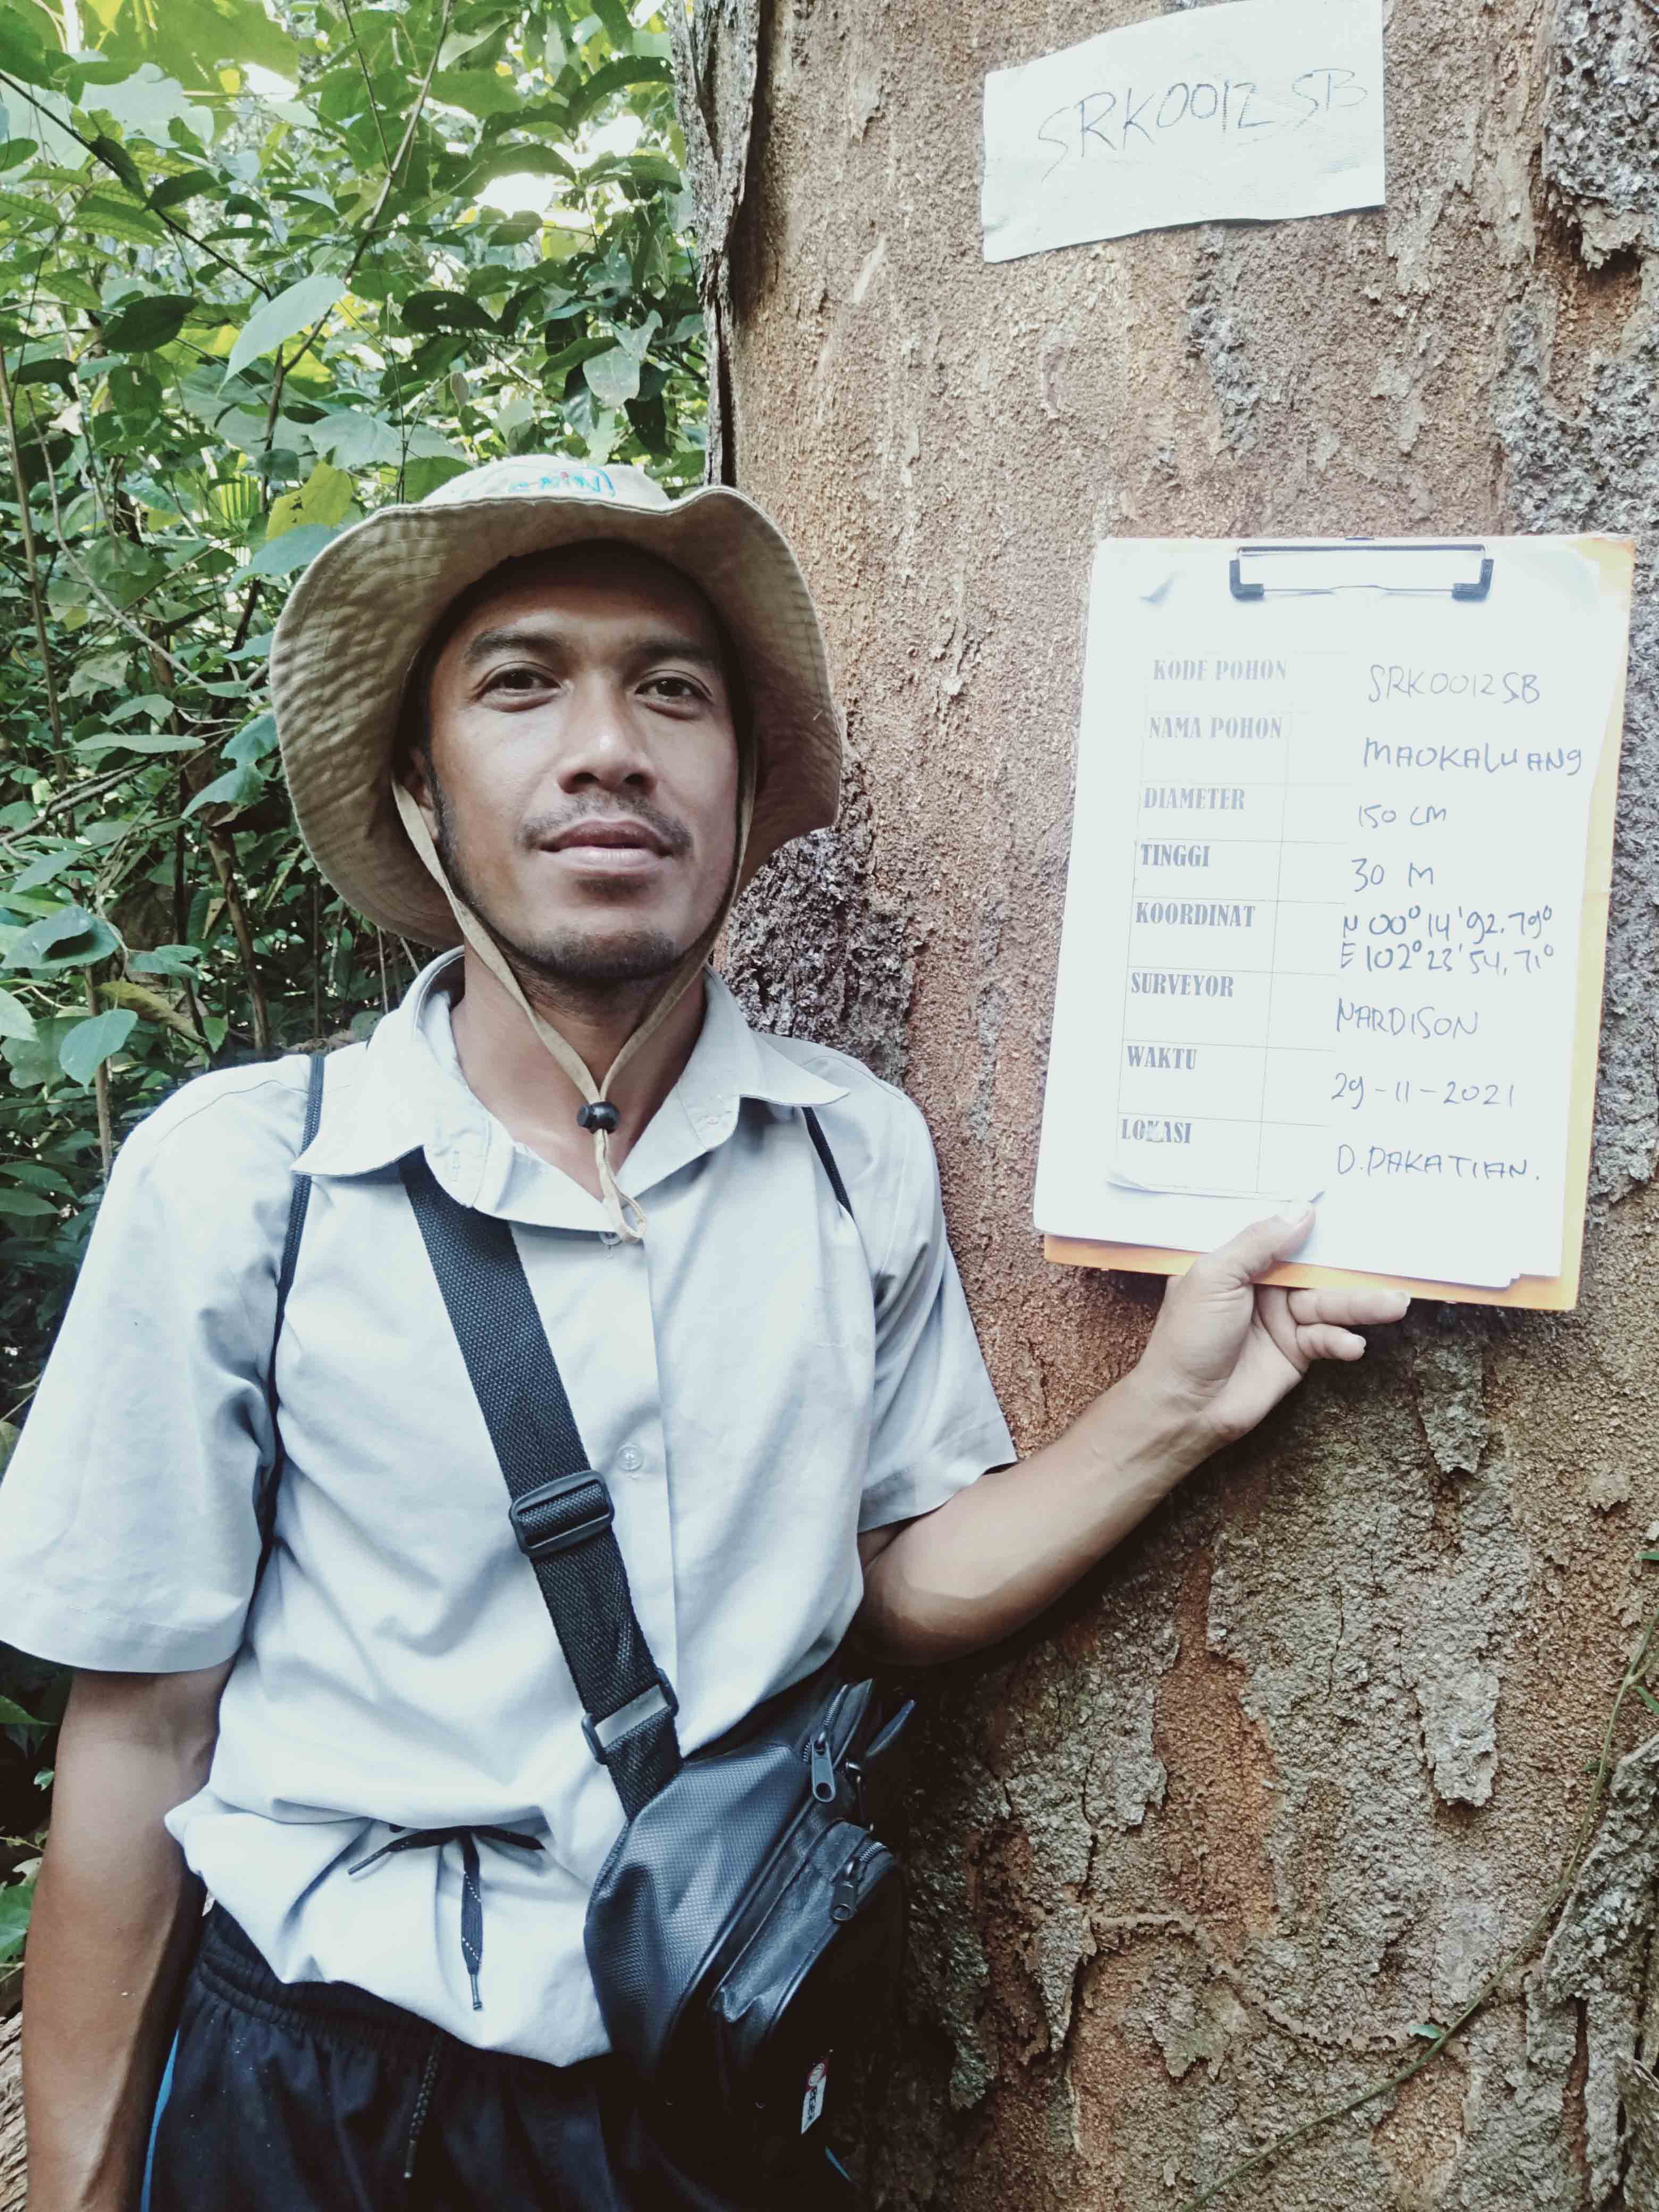 SRK0012 SB
KODE POHON SRK0012SB
NAMA POHON MAOKALUANG
DIAMETER 150 CM
TINGGI 30 M
KOORDINAT N 00° 14' 92.79°
E 102° 23' 54,71°
SURVEYOR NARDISON
WAKTU 29-11-2021
LOKASI D.PAKATIAN.